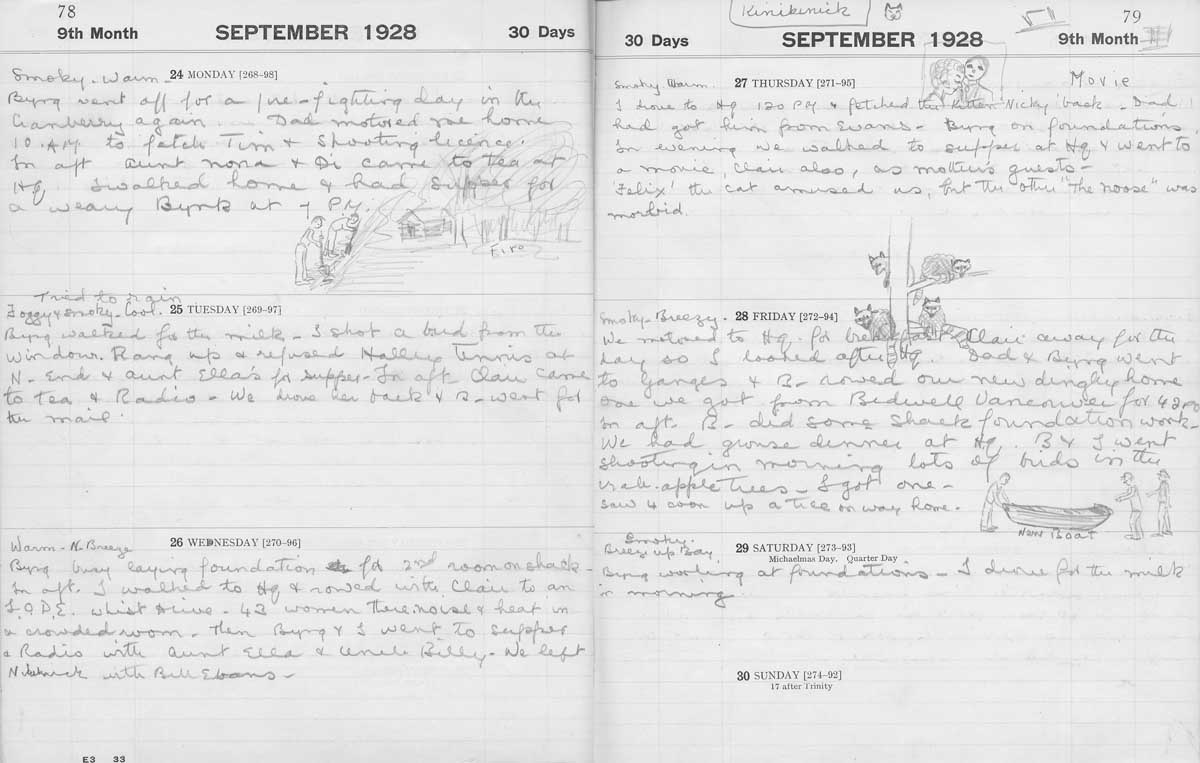 78
9th Month SEPTEMBER 1928 30 Days
Smoky - Warm 24 MONDAY [268-98]
Byng went off for a fire-fighting day in the
Cranberry again Dad motored me home
10 AM to fetch Tim & Shooting licence.
In aft Aunt Nona & Di came to tea at
Hq I walked home & had supper for
a weary Byng at 7 PM.
Fire
Tried to rain
Foggy & smoky - Cool. 25 TUESDAY [269-97]
Byng walked for the milk - I shot a bird from the
window. Rang up & refused Halley Tennis at
N. End & Aunt Ella's for supper - In aft Clair came
to tea & Radio - We drove her back & B - went for
the mail.
Warm - N. Breeze 26 WEDNESDAY [270-96]
Byng was laying foundation for 2nd room on shack -
In aft. I walked to Hq & rowed with Clair to an
I.O.D.E. whist drive - 42 women there, noise & heat in
a crowded room - Then Byng & I went to supper
& Radio with Aunt Ella & Uncle Billy - We left
with Bill Evans -
E3 33
Kinikinick 79
30 Days SEPTEMBER 1928 9th Month
Movie
Smoky Warm 27 THURSDAY [271-95]
I drove to Hq 1.20 PM & fetched the kitten Nicky back - Dad
had got him from Evans - Byng on foundations
In evening we walked to supper at Hq & went to
a movie, Clair also, as mother's guests -
'Felix' the cat amused us, but the other "The noose" was
morbid.
Smoky - Breezy. 28 FRIDAY [272-94]
We motored to Hq. for breakfast Clair away for the
day so I looked after Hq. Dad & Byng went
to Ganges & B - rowed our new dinghy home
one we got from Bidwell Vancouver for
In aft. B - did some Shack foundation work -
We had grouse dinner at Hq. B & I went
shooting in morning lots of birds in the
crab-apple trees - I got one -
saw 4 coon up a tree on way home.
New Boat
Smoky.
Breeze up Bay 29 SATURDAY [273-93]
Michaelmas Day. Quarter Day
Byng working at foundations - I drove for the milk
in morning
30 SUNDAY [274-92]
17 after Trinity